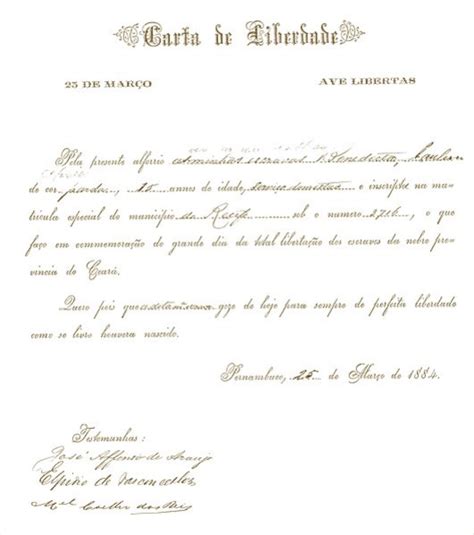 Carta de Liberdade
25 DE MARÇO AVE LIBERTAS
Pela presente alforrio as minhas escravas Benedicta,
de cor parda, 15 annos de idade, serviço domestico e inscripta na ma-
tricula especial do municipio do Recife sob o numero 2716, o que
faço em commemoração do grande dia da total libertação dos escravos da nobre pro-
vincia do Ceará.
Quero pois que a dita escrava goze de hoje para sempre de perfeita liberdade
como se livre houvera nascido.
Pernambuco, 25 de Março de 1884.
Testemunhas:
José Affonso de Araujo
Elpidio de Vasconcellos
Mel Coelho dos Reis